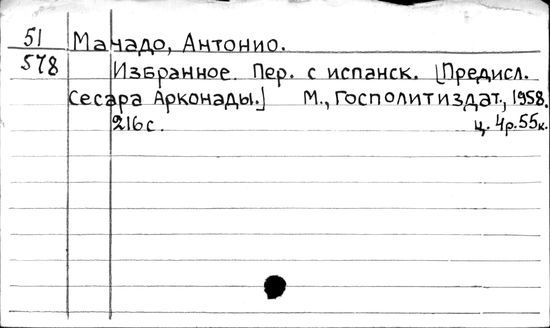 51 Мачадо, Антонио.
578 Избранное. Пер. с испанск. [Предисл.
Сесара Арконады.] М., Госполитиздат, 1958.
216 с. ц. 4р.55к.